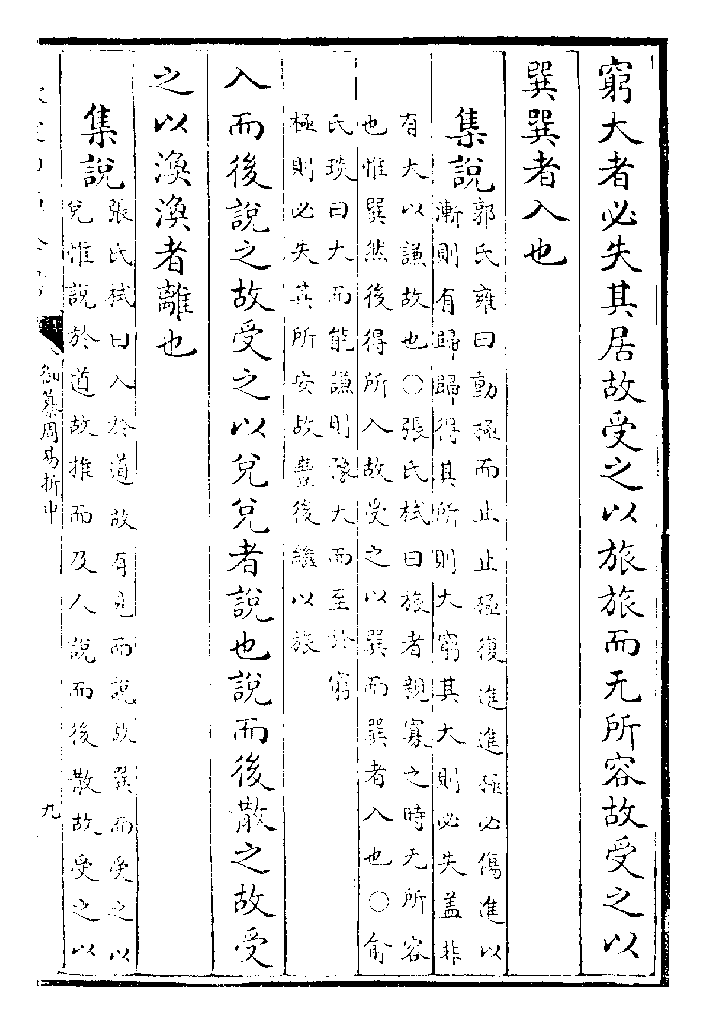 窮大者必失其居故受之以旅旅而无所容故受之以
巽巽者入也
集說
郭氏雍曰動極而止止極復進進極必傷進以
漸則有歸歸得其所則大窮其大則必失蓋非
有大以謙故也○張氏栻曰旅者親寡之時无所容
也惟巽然後得所入故受之以巽而巽者入也○俞
氏琰曰大而能謙則豫大而至於窮
極則必失其所安故豐後繼以旅
入而後說之故受之以兌兌者說也說而後散之故受
之以渙渙者離也
集說
張氏栻曰入於道故有見而說故巽而受之以
兌惟說於道故推而及人說而後散故受之以
御纂周易折中
九